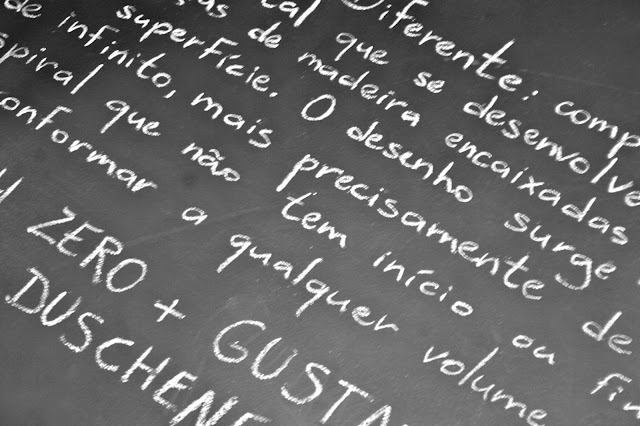 Diferente: comp
cal que se desenvolve
ças de madeira encaixadas
superfície. O desenho surge
de infinito, mais precisamente de
spiral que não tem início ou fim
onformar a qualquer volume
ZERO + GUSTA
DUSCHENE